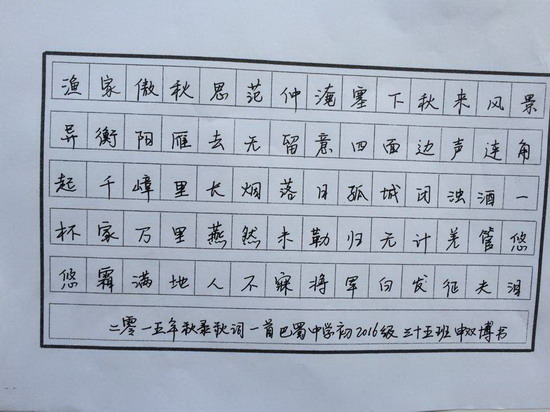 渔家傲秋思范仲淹塞下秋来风景
异衡阳雁去无留意四面边声连角
起千嶂里长烟落日孤城闭浊酒一
杯家万里燕然未勒归无计羌管悠
悠霜满地人不寐将军白发征夫泪
二零一五年秋录秋词一首巴蜀中学初2016级三十五班申双博书